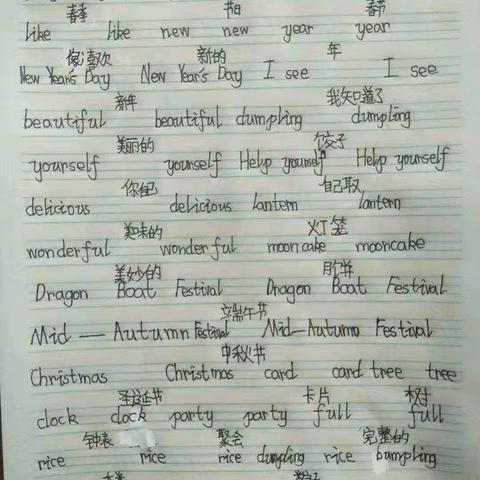 春季 节日 春节
like like new new year year
像;喜欢 新的 年
New Year's Day New Year's Day I see I see
新年 我知道了
beautiful beautiful dumpling dumpling
美丽的 饺子
yourself yourself Help yourself Help yourself
你自己 自己取
delicious delicious lantern lantern
美味的 灯笼
wonderful wonderful mooncake mooncake
美妙的 月饼
Dragon Boat Festival Dragon Boat Festival
端午节
Mid-Autumn Festival Mid-Autumn Festival
中秋节
Christmas Christmas card card tree tree
圣诞节 卡片 树
clock clock party party full full
钟表 聚会 完整的
rice rice rice dumpling rice bumpling